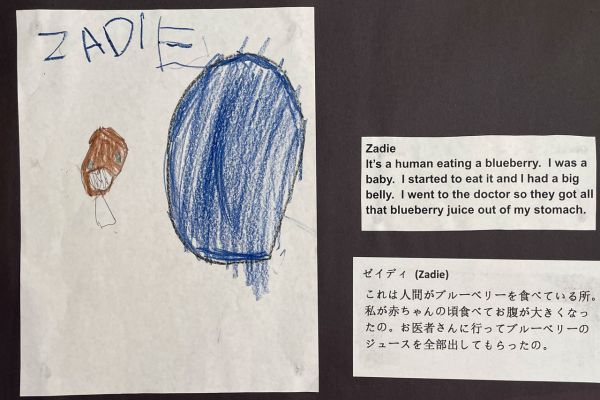 ZADIE
Zadie
It's a human eating a blueberry.  I was a
baby.  I started to eat it and I had a big
belly.  I went to the doctor so they got all
that blueberry juice out of my stomach.
ゼイディ (Zadie)
これは人間がブルーベリーを食べている所。
私が赤ちゃんの頃食べてお腹が大きくなっ
たの。お医者さんに行ってブルーベリーの
ジュースを全部出してもらったの。